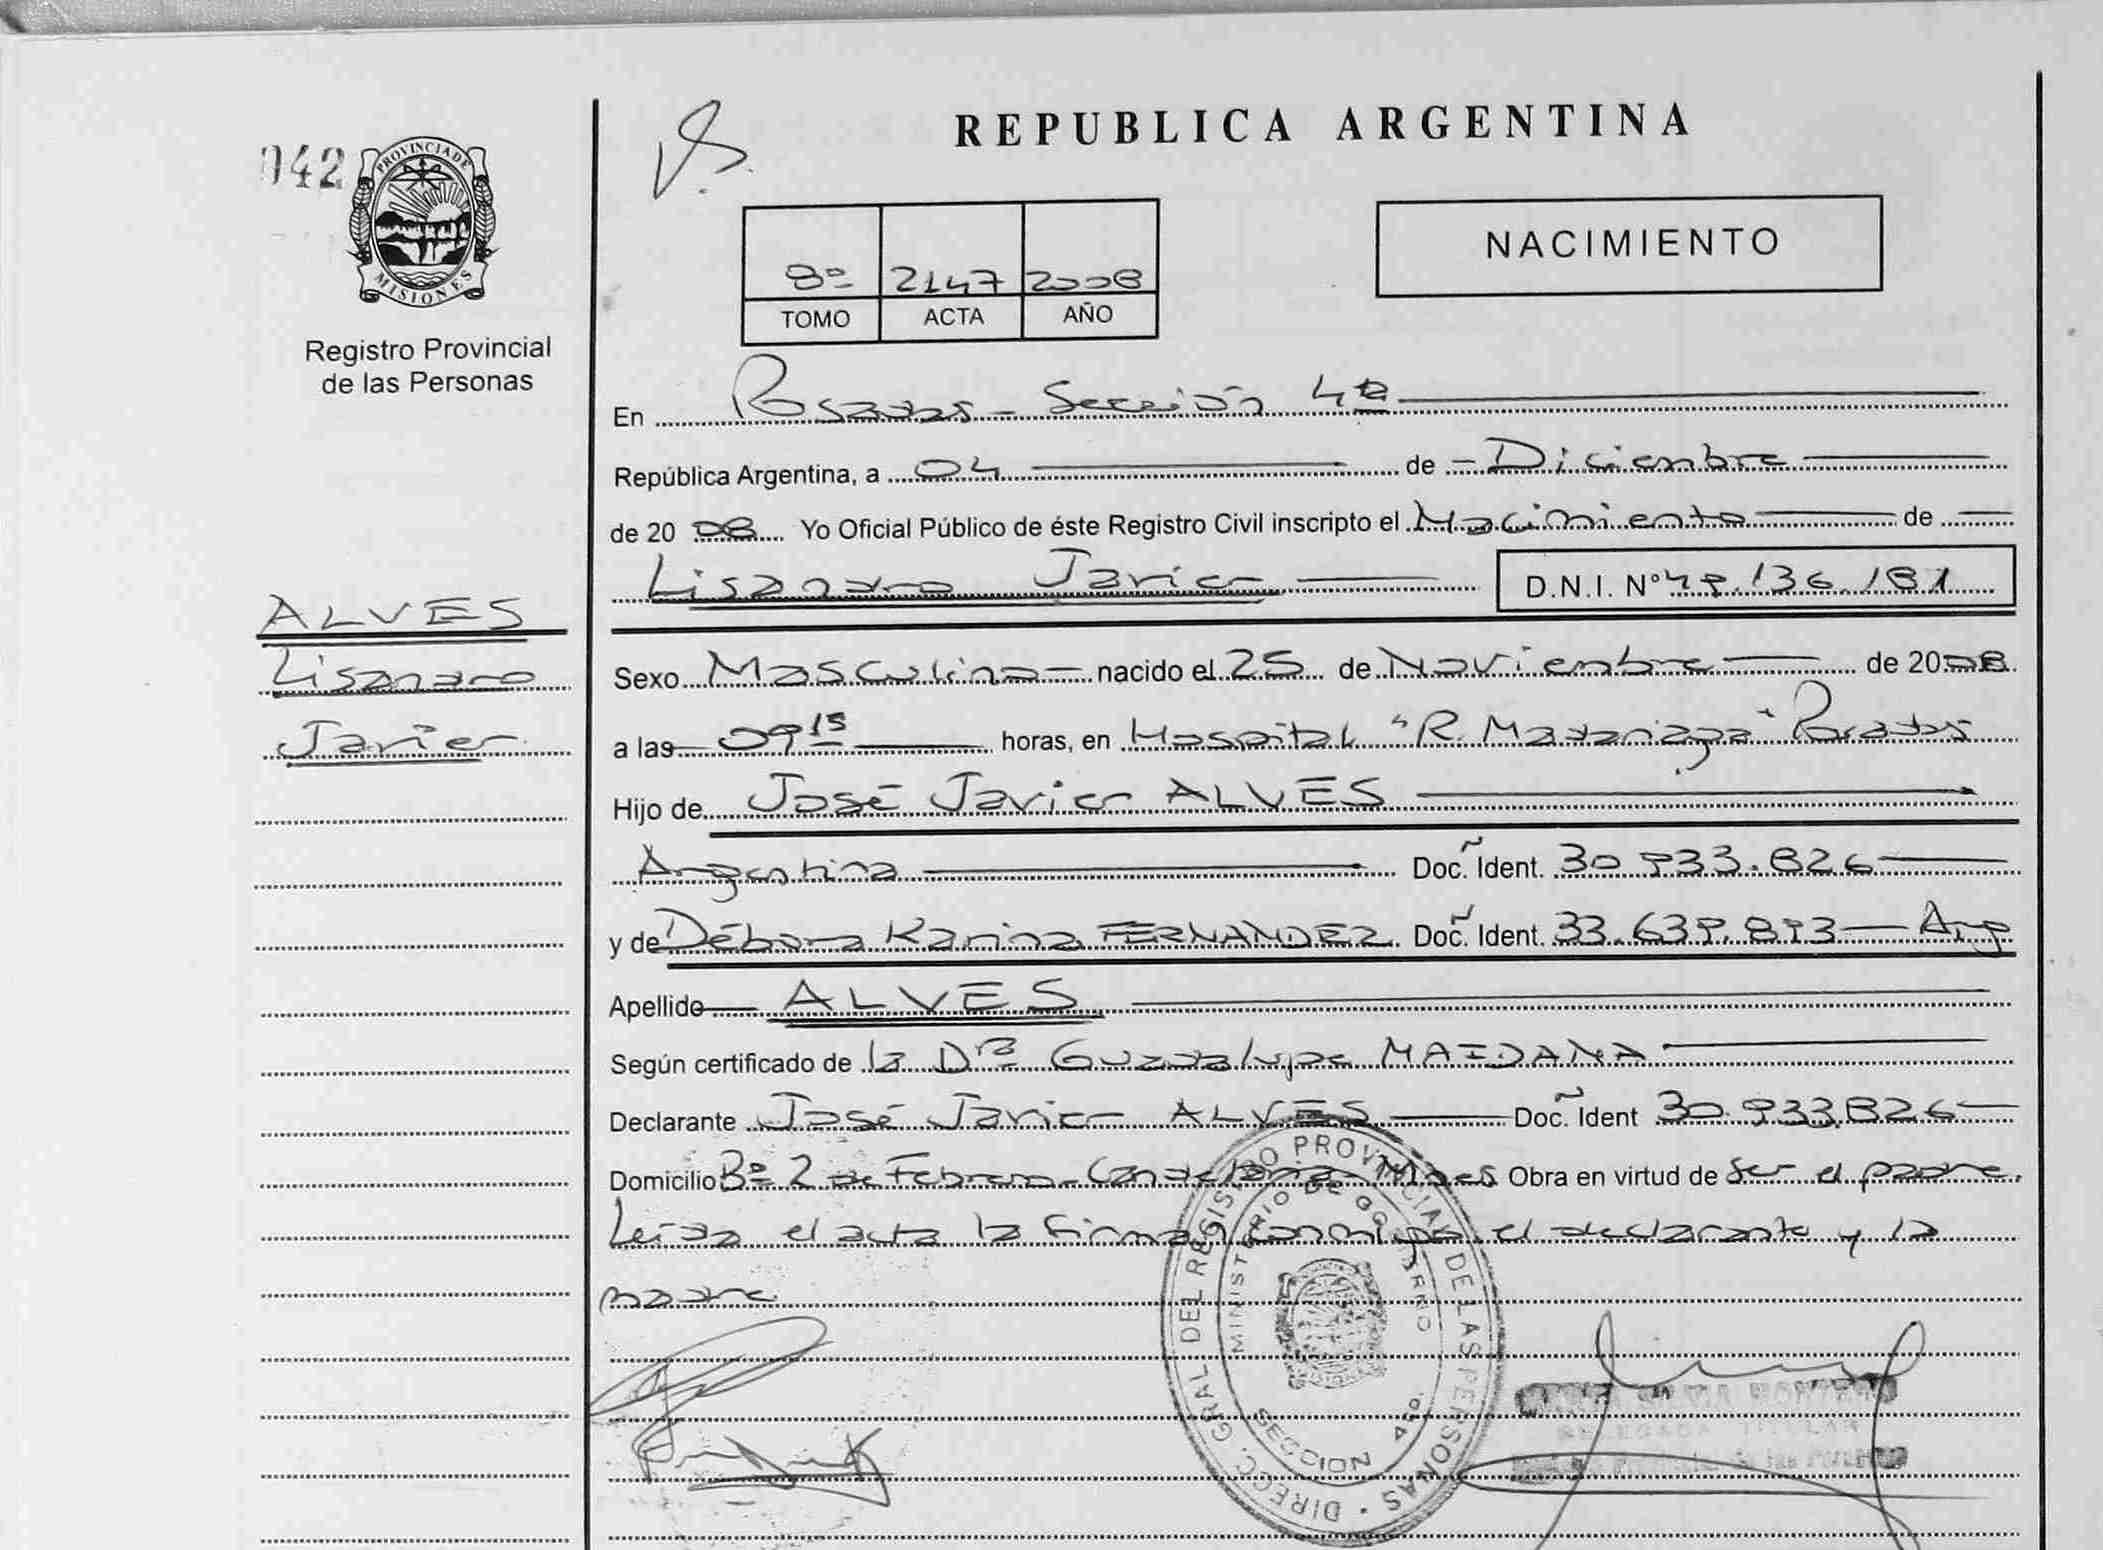 REPUBLICA ARGENTINA
042
PROVINCIA DE
MISIONES
Registro Provincial
de las Personas
8º 2147 2008
TOMO ACTA AÑO
NACIMIENTO
En Posadas - Sección 4ª
República Argentina, a 04 de Diciembre
de 2008 Yo Oficial Público de éste Registro Civil inscripto el Nacimiento de
Lisandro Javier D.N.I. Nº 49.136.181
ALVES
Lisandro
Javier
Sexo Masculino nacido el 25 de Noviembre de 2008
a las 09 15 horas, en Hospital "R. Madariaga" Posadas
Hijo de José Javier ALVES
Argentina Doc. Ident. 30.933.826
y de Débora Karina FERNANDEZ Doc. Ident. 33.639.893 Arg
Apellido ALVES
Según certificado de la Dra Guadalupe MAIDANA
Declarante José Javier ALVES Doc. Ident 30.933.826
Domicilio Bº 2 de Febrero - Candelaria - Mnes Obra en virtud de Ser el padre.
Leída el acta la firman conmigo el declarante y la
madre
DIRECC. GRAL DEL REGISTRO PROVINCIAL DE LAS PERSONAS
MINISTERIO DE GOBIERNO
SECCION 4ta.
SILVIA
DELEGADA TITULAR
de las Personas